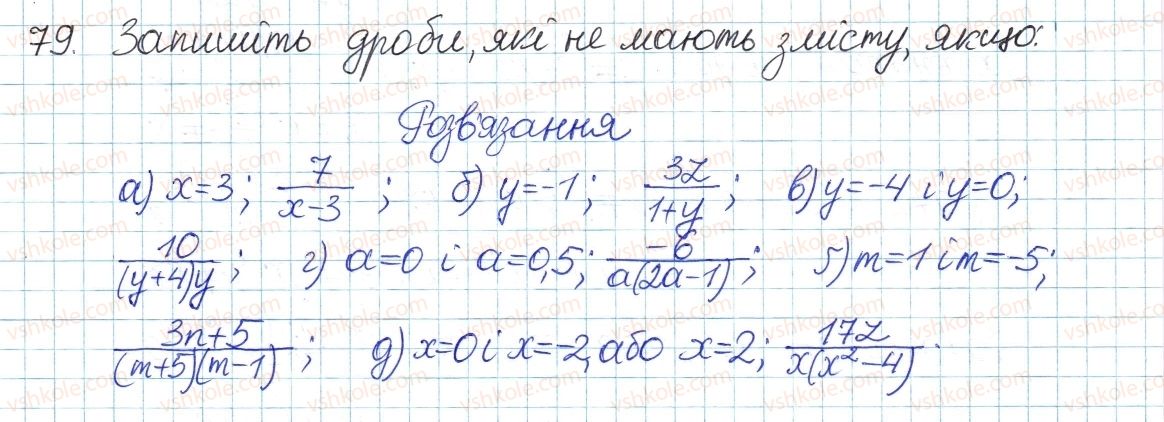 79. Запишіть дроби, які не мають змісту, якщо:
Розв'язання
а) x=3; 7/(x-3); б) y=-1; 3z/(1+y); в) y=-4 і y=0;
10/((y+4)y); г) a=0 і a=0,5; -6/(a(2a-1)); ґ) m=1 і m=-5;
(3n+5)/((m+5)(m-1)); д) x=0 і x=-2, або x=2; 17z/(x(x²-4)).